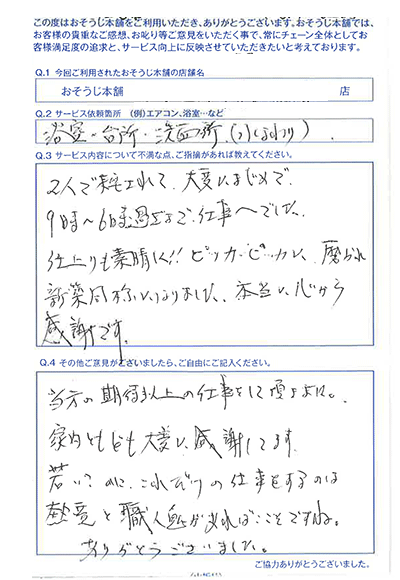 この度はおそうじ本舗をご利用いただき、ありがとうございます。おそうじ本舗では、
お客様の貴重なご感想、お叱り等ご意見をいただく事で、常にチェーン全体としてお
客様満足度の追求と、サービス向上に反映させていただきたいと考えております。
Q.1 今回ご利用されたおそうじ本舗の店舗名
おそうじ本舗 店
Q.2 サービス依頼箇所 (例)エアコン、浴室…など
浴室・台所・洗面所(水まわり)
Q.3 サービス内容について不満な点、ご指摘があれば教えてください。
2人で来られて、大変まじめで、
9時〜6時過まで仕事でした。
仕上りも素晴しく!! ピッカピッカに 磨かれ
新築同様になりました、本当に心から
感謝です。
Q.4 その他ご意見がございましたら、ご自由にご記入ください。
当方の期待以上の仕事をして頂きました。
家内ともども大変に感謝してます。
若い?のに、これだけの仕事をするのは
熱意と職人魂があればことですね。
ありがとうございました。
ご協力ありがとうございました。